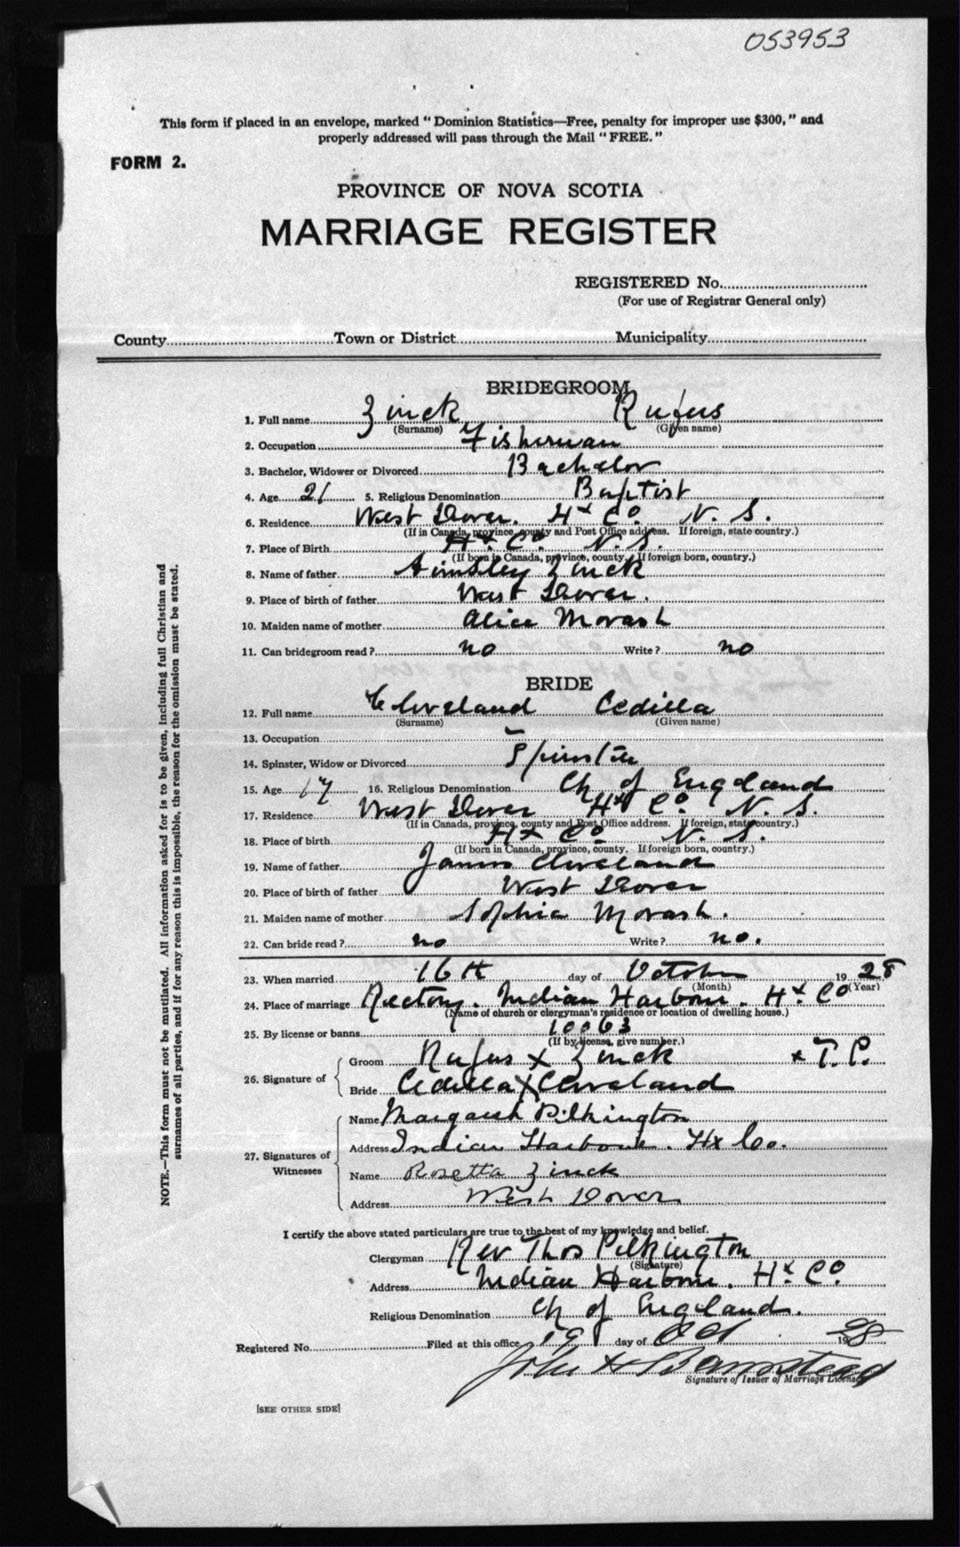 053953
This form if placed in an envelope, marked "Dominion Statistics—Free, penalty for improper use $300," and
properly addressed will pass through the Mail "FREE."
FORM 2.
PROVINCE OF NOVA SCOTIA
MARRIAGE REGISTER
REGISTERED No.
(For use of Registrar General only)
County Town or District Municipality
BRIDEGROOM
1. Full name Zinck Rufus
(Surname) (Given name)
2. Occupation Fisherman
3. Bachelor, Widower or Divorced Bachelor
4. Age 21 5. Religious Denomination Baptist
6. Residence West Dover. Hx Co. N. S.
(If in Canada, province, county and Post Office address. If foreign, state country.)
7. Place of Birth Hx Co. N. S.
(If born in Canada, province, county. If foreign born, country.)
8. Name of father Ainsley Zinck
9. Place of birth of father West Dover.
10. Maiden name of mother Alice Morash
11. Can bridegroom read? no Write? no
BRIDE
12. Full name Cleveland Cedilla
(Surname) (Given name)
13. Occupation
14. Spinster, Widow or Divorced Spinster
15. Age 17 16. Religious Denomination Ch of England
17. Residence West Dover Hx Co N. S.
(If in Canada, province, county and Post Office address. If foreign, state country.)
18. Place of birth Hx Co N. S.
(If born in Canada, province, county. If foreign born, country.)
19. Name of father James Cleveland
20. Place of birth of father West Dover
21. Maiden name of mother Sophia Morash.
22. Can bride read? no Write? no.
23. When married 16th day of October 1928
(Month) (Year)
24. Place of marriage Rectory. Indian Harbour. Hx Co
(Name of church or clergyman's residence or location of dwelling house.)
25. By license or banns 10063
(If by license, give number.)
26. Signature of
Groom Rufus x Zinck x T.P.
Bride Cedilla x Cleveland
27. Signatures of Witnesses
Name Margaret Pilkington
Address Indian Harbour. Hx Co.
Name Rosetta Zinck
Address West Dover
I certify the above stated particulars are true to the best of my knowledge and belief.
Clergyman Rev Thos Pilkington
(Signature)
Address Indian Harbour. Hx Co.
Religious Denomination Ch of England.
Registered No. Filed at this office 19 day of Oct 1928
John H Barnstead
Signature of Issuer of Marriage License
[SEE OTHER SIDE]
NOTE.—This form must not be mutilated. All information asked for is to be given, including full Christian and
surnames of all parties, and if for any reason this is impossible, the reason for the omission must be stated.